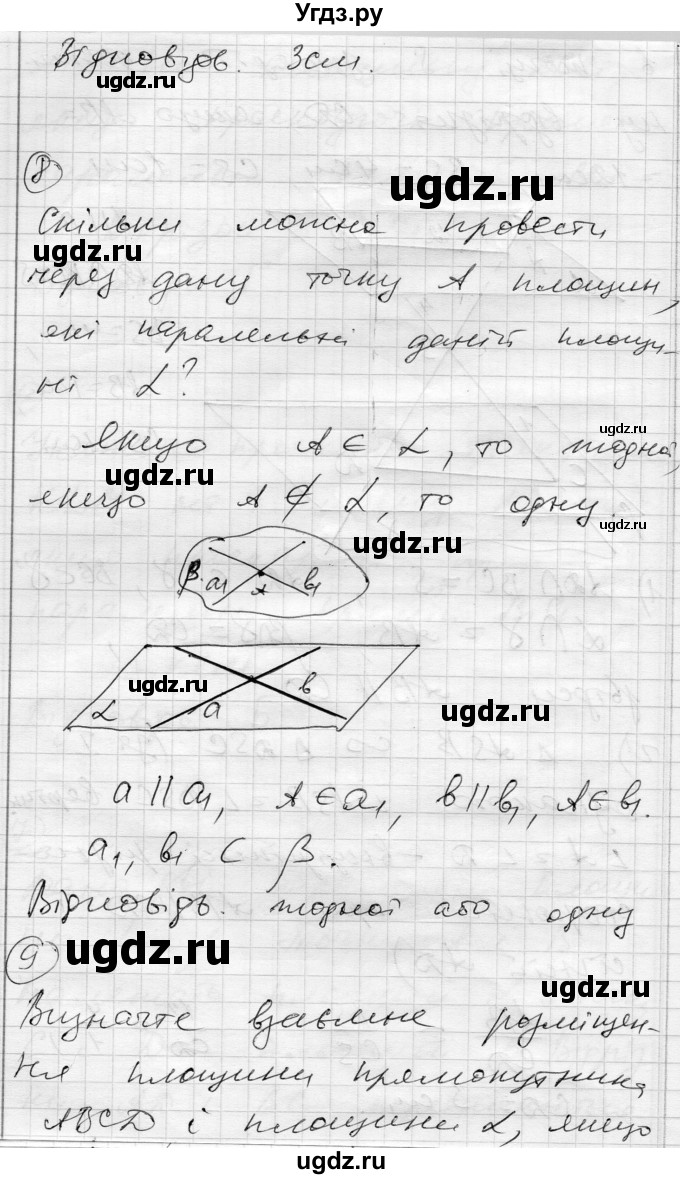 Угдз.ру
Відповідь. 3см.
ugdz.ru
8
ugdz.ru
Скільки можна провести
ugdz.ru
через дану точку A площин,
які паралельні даній площи-
ні α?
ugdz.ru
Якщо A ∈ α, то жодної,
ugdz.ru
якщо A ∉ α, то одну.
ugdz.ru
ugdz.ru
β a₁ A b₁
ugdz.ru
α a b
ugdz.ru
a || a₁, A ∈ a₁, b || b₁, A ∈ b₁.
a₁, b₁ ⊂ β.
Відповідь. жодної або одну
9
ugdz.ru
ugdz.ru
Визначте взаємне розміщен-
ня площини прямокутника
ABCD і площини α, якщо
ugdz.ru